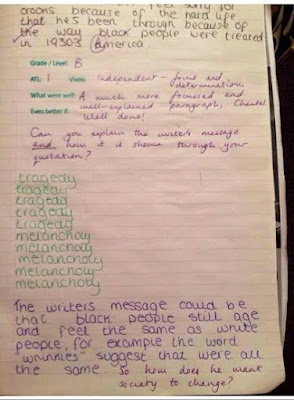 crooks because of the hard life
that he's been through because of
the way black people were treated
in 1930s America.
Grade / Level: B
ATL: 1 Vivos: Independent - focus and
determination.
What went well: A much more focused and
well-explained paragraph, Chantel.
Even better if: Well done!
Can you explain the writer's message
and how it is shown through your
quotation?
tragedy
tragedy
tragedy
tragedy
tragedy
melancholy
melancholy
melancholy
melancholy
melancholy
The writers message could be
that black people still age
and feel the same as white
people, for example the word
"wrinkles" suggest that were all
the same. So how does he want
society to change?